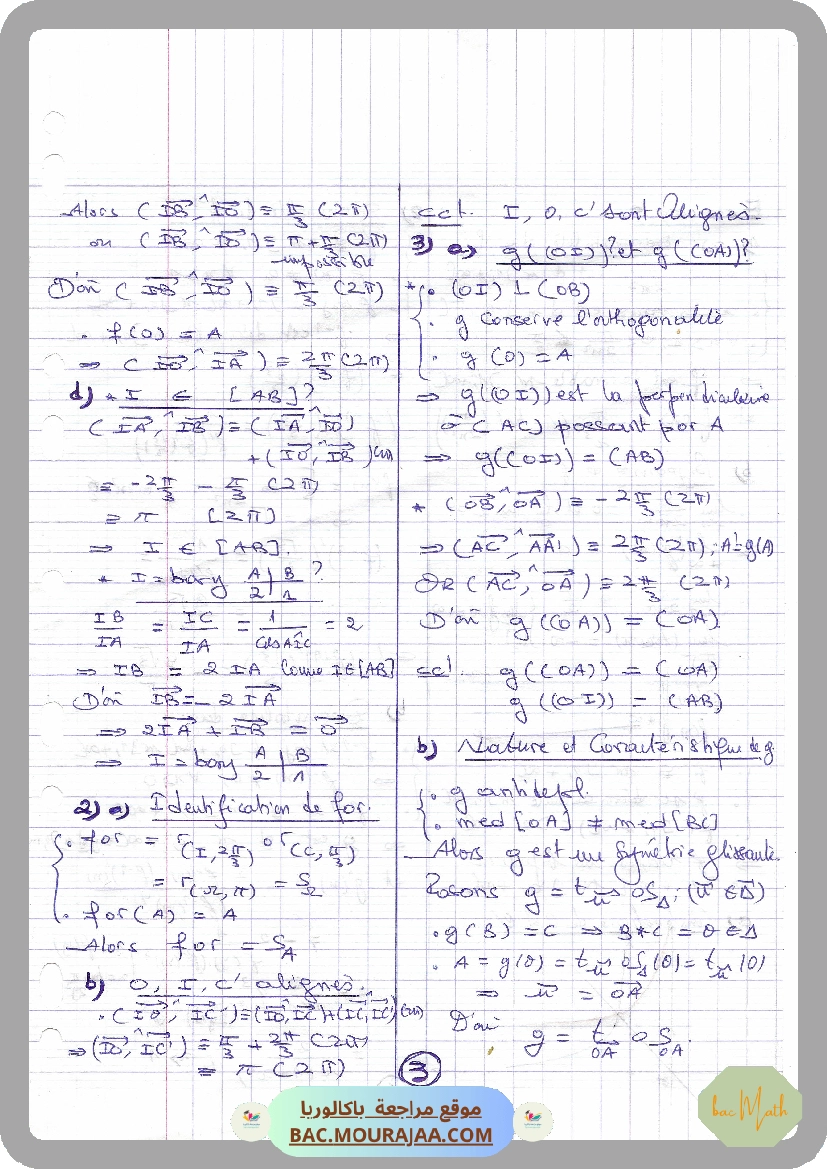 Alors (IB^, IO) ≡ π/3 (2π)
ou (IB^, IO) ≡ π + π/3 (2π)
impossible
D'où (IB^, IO) ≡ π/3 (2π)
. f(O) = A
⇒ (IO^, IA) ≡ 2π/3 (2π)
d) * I ∈ [AB]?
(IA^, IB) ≡ (IA^, IO)
+ (IO^, IB) (2π)
≡ -2π/3 - π/3 (2π)
≡ π [2π]
⇒ I ∈ [AB].
* I = bary A|B 2|1 ?
IB/IA = IC/IA = 1/cos AÎC = 2
⇒ IB = 2 IA Comme I∈[AB]
D'où IB = -2 IA
⇒ 2IA + IB = O
⇒ I = bary A|B 2|1
2) a) Identification de for.
{ . for = r(I, 2π/3) o r(C, π/3)
= r(Ω, π) = SΩ
. for(A) = A
Alors for = SA
b) O, I, C' alignés.
. (IO^, IC') ≡ (IO^, IC) + (IC^, IC') (2π)
⇒ (IO^, IC') ≡ π/3 + 2π/3 (2π)
≡ π (2π)
ccl. I, O, C' sont alignés.
3) a) g((OI))? et g((OA))?
* { . (OI) ⊥ (OB)
. g conserve l'orthogonalité
. g(O) = A
⇒ g((OI)) est la perpendiculaire
à (AC) passant par A
⇒ g((OI)) = (AB)
* (OB^, OA) ≡ -2π/3 (2π)
⇒ (AC^, AA') ≡ 2π/3 (2π); A'=g(A)
OR (AC^, OA) ≡ 2π/3 (2π)
D'où g((OA)) = (OA).
ccl. g((OA)) = (OA)
g((OI)) = (AB)
b) Nature et Caractéristique de g
{ . g antidepl.
. med [OA] ≠ med [BC]
Alors g est une Symétrie glissante.
Posons g = t_u o S_Δ; (u ∈ Δ)
. g(B) = C ⇒ B*C = O ∈ Δ
. A = g(O) = t_u o S_Δ(O) = t_u(O)
⇒ u = OA
D'où g = t_OA o S_OA.
3
موقع مراجعة باكالوريا
BAC.MOURAJAA.COM
bac Math